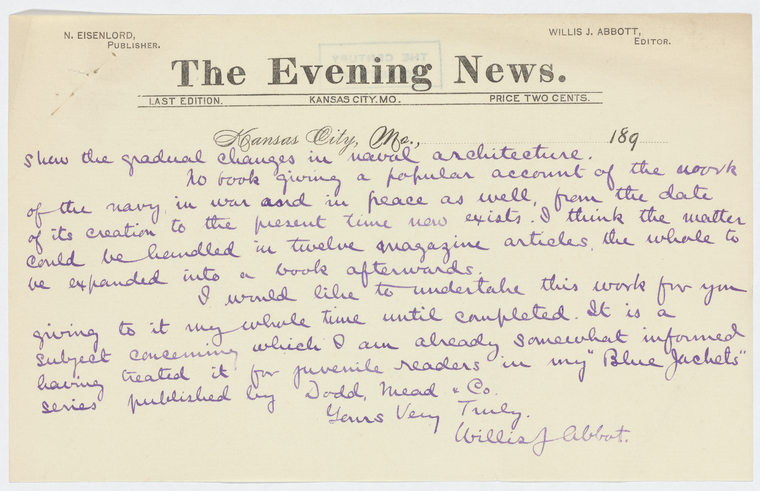 N. EISENLORD,
PUBLISHER.
WILLIS J. ABBOTT,
EDITOR.
THE CENTURY
The Evening News.
LAST EDITION. KANSAS CITY, MO. PRICE TWO CENTS.
Kansas City, Mo., 189
show the gradual changes in naval architecture.
No book giving a popular account of the work
of the navy in war and in peace as well, from the date
of its creation to the present time now exists. I think the matter
could be handled in twelve magazine articles, the whole to
be expanded into a book afterwards.
I would like to undertake this work for you
giving to it my whole time until completed. It is a
subject concerning which I am already somewhat informed
having treated it for juvenile readers in my "Blue Jackets"
series published by Dodd, Mead & Co.
Yours Very Truly.
Willis J Abbot.